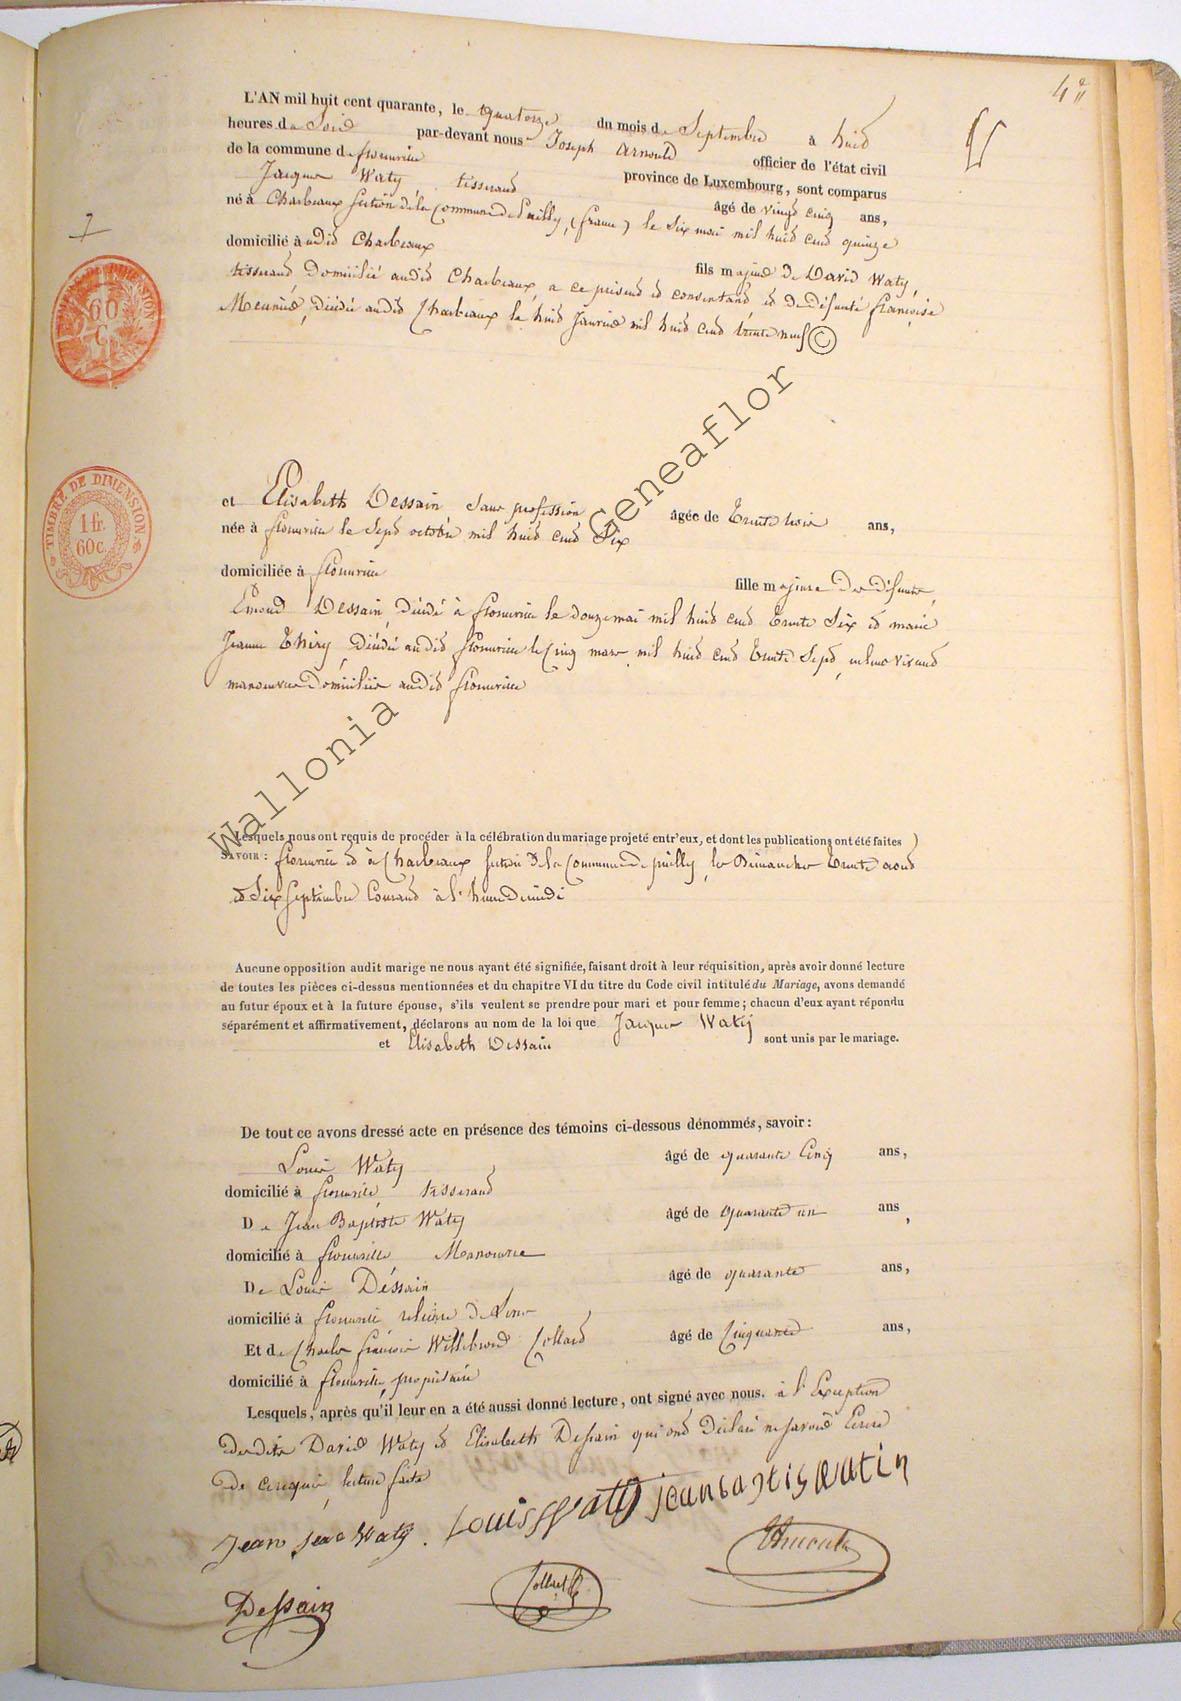 4
L'AN mil huit cent quarante, le quatorze du mois de Septembre à huit
heures du Soir par-devant nous Joseph Arnould officier de l'état civil
de la commune de florenville province de Luxembourg, sont comparus
Jacques Waty tisserand âgé de vingt cinq ans,
né à Charbeaux Section de la Commune de Puilly, (france) le Six mai mil huit cent quinze
domicilié audit Charbeaux fils majeur de David Waty,
tisserand domicilié audit Charbeaux, a ce présent et consentant et de défunte françoise
Meunier, décédée audit Charbeaux le huit Janvier mil huit cent trente neuf
TIMBRE DE DIMENSION
60
C
TIMBRE DE DIMENSION
1 fr.
60 c.
et Elisabeth Dessain Sans profession âgée de trente trois ans,
née à florenville le Sept octobre mil huit cent Six
domiciliée à florenville fille majeure de défunts
Emond Dessain, décédé à florenville le douze mai mil huit cent trente Six et marie
Jeanne Thiry, décédée audit florenville le cinq mars mil huit cent trente Sept, vivant
manoeuvres domiciliés audit florenville
Lesquels nous ont requis de procéder à la célébration du mariage projeté entr'eux, et dont les publications ont été faites
SAVOIR : florenville et à Charbeaux Section de la Commune de puilly, les Dimanches trente août
et Six Septembre Courant à l'heure de midi
Aucune opposition audit marige ne nous ayant été signifiée, faisant droit à leur réquisition, après avoir donné lecture
de toutes les pièces ci-dessus mentionnées et du chapitre VI du titre du Code civil intitulé du Mariage, avons demandé
au futur époux et à la future épouse, s'ils veulent se prendre pour mari et pour femme ; chacun d'eux ayant répondu
séparément et affirmativement, déclarons au nom de la loi que Jacques Waty
et Elisabeth Dessain sont unis par le mariage.
De tout ce avons dressé acte en présence des témoins ci-dessous dénommés, savoir :
Louis Waty âgé de quarante Cinq ans,
domicilié à florenville, tisserand
De Jean Baptiste Waty âgé de quarante un ans,
domicilié à florenville Manoeuvre
De Louis Dessain âgé de quarante ans,
domicilié à florenville relieur de livres
Et de Charles françois Willebrord Collard âgé de Cinquante ans,
domicilié à florenville, propriétaire
Lesquels, après qu'il leur en a été aussi donné lecture, ont signé avec nous. à l'Exception
desdits David Waty et Elisabeth Dessain qui ont déclaré ne savoir Ecrire
de ce requis, lecture faite
Jean Jac Waty. Louis Waty jean baptis Watin
Dessain Collard
Wallonia Geneaflor ©